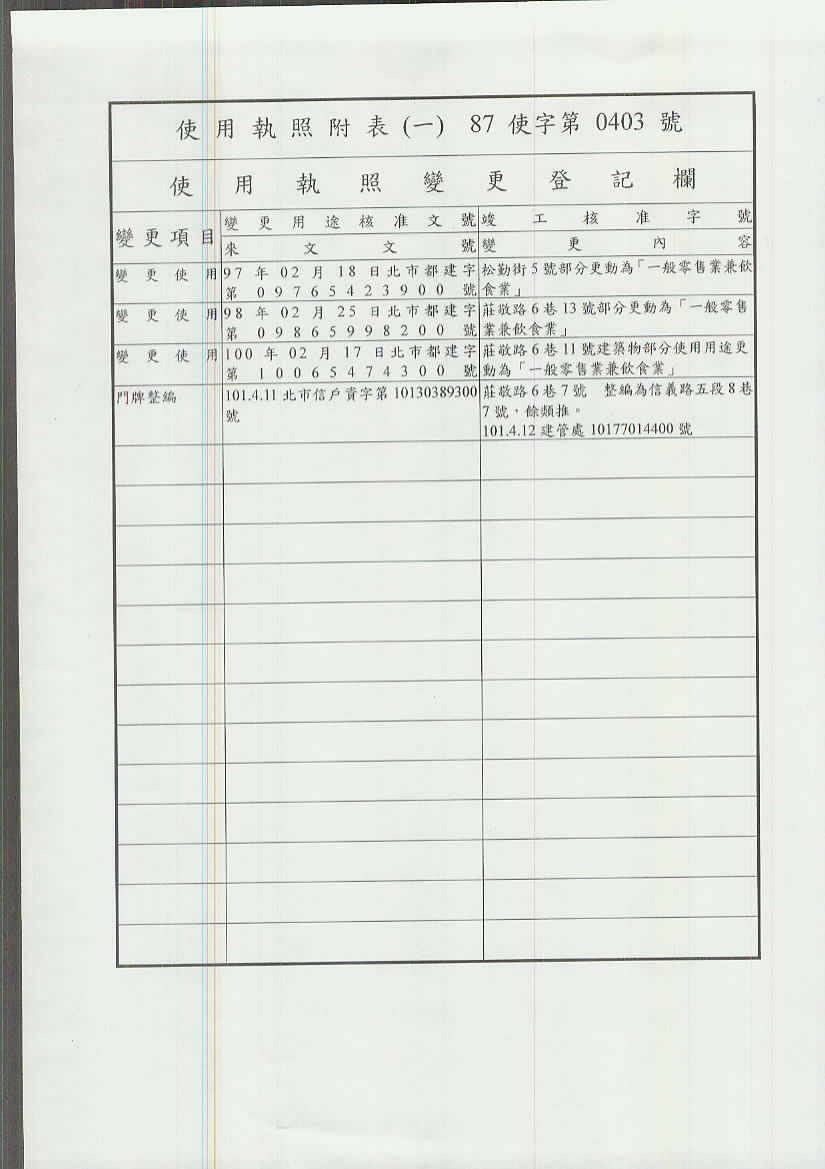 使用執照附表(一) 87使字第 0403 號
使用執照變更登記欄
變更項目
變更用途核准文號
竣工核准字號
來文文號
變更內容
變更使用
97年02月18日北市都建字
第09765423900號
松勤街5號部分更動為「一般零售業兼飲
食業」
變更使用
98年02月25日北市都建字
第09865998200號
莊敬路6巷13號部分更動為「一般零售
業兼飲食業」
變更使用
100年02月17日北市都建字
第10065474300號
莊敬路6巷11號建築物部分使用用途更
動為「一般零售業兼飲食業」
門牌整編
101.4.11北市信戶資字第10130389300
號
莊敬路6巷7號 整編為信義路五段8巷
7號，餘類推。
101.4.12建管處10177014400號